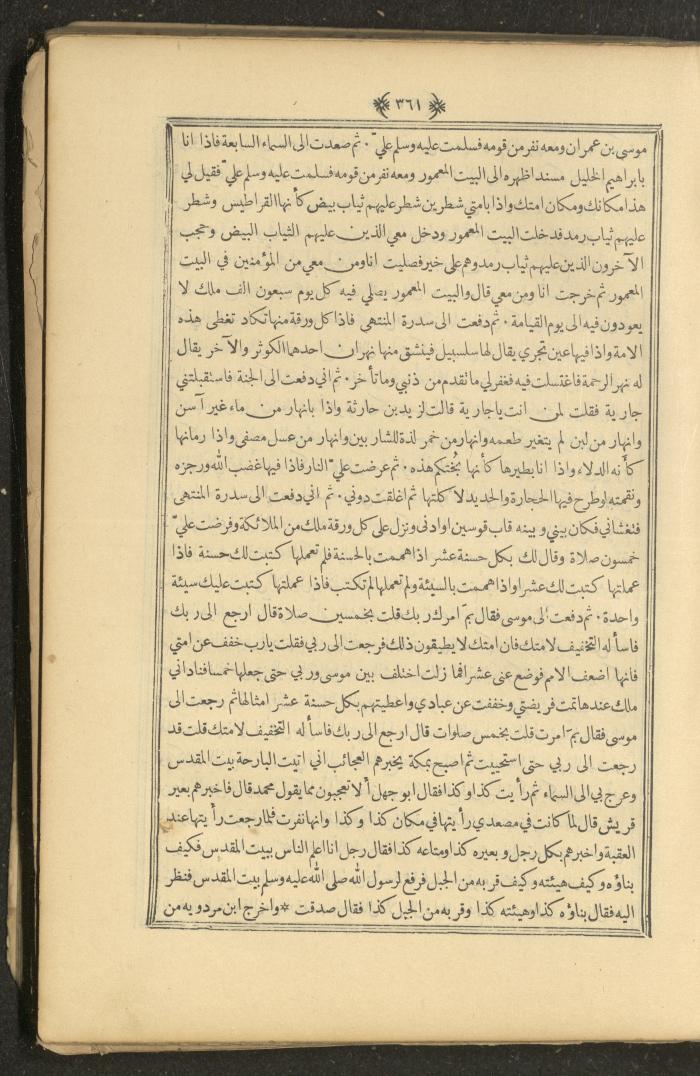 ﴿ ٣٦١ ﴾
موسى بن عمران ومعه نفر من قومه فسلمت عليه وسلم عليّ . ثم صعدت الى السماء السابعة فاذا انا
بابراهيم الخليل مسندا ظهره الى البيت المعمور ومعه نفر من قومه فسلمت عليه وسلم عليّ فقيل لي
هذا مكانك ومكان امتك واذا بامتي شطرين شطر عليهم ثياب بيض كأنها القراطيس وشطر
عليهم ثياب رمد فدخلت البيت المعمور ودخل معي الذين عليهم الثياب البيض وحجب
الآخرون الذين عليهم ثياب رمد وهم على خير فصليت انا ومن معي من المؤمنين في البيت
المعمور ثم خرجت انا ومن معي قال والبيت المعمور يصلي فيه كل يوم سبعون الف ملك لا
يعودون فيه الى يوم القيامة . ثم دفعت الى سدرة المنتهى فاذا كل ورقة منها تكاد تغطى هذه
الامة واذا فيها عين تجري يقال لها سلسبيل فينشق منها نهران احدهما الكوثر والآخر يقال
له نهر الرحمة فاغتسلت فيه فغفر لي ما تقدم من ذنبي وما تأخر . ثم اني دفعت الى الجنة فاستقبلتني
جارية فقلت لمن انت يا جارية قالت لزيد بن حارثة واذا بانهار من ماء غير آسن
وانهار من لبن لم يتغير طعمه وانهار من خمر لذة للشاربين وانهار من عسل مصفى واذا رمانها
كأنه الدلاء واذا انا بطيرها كأنها بُختكم هذه . ثم عرضت عليّ النار فاذا فيها غضب الله ورجزه
ونقمته لو طرح فيها الحجارة والحديد لاكلتها ثم اغلقت دوني . ثم اني دفعت الى سدرة المنتهى
فتغشاني فكان بيني وبينه قاب قوسين او ادنى ونزل على كل ورقة ملك من الملائكة وفرضت عليّ
خمسون صلاة وقال لك بكل حسنة عشر اذا هممت بالحسنة فلم تعملها كتبت لك حسنة فاذا
عملتها كتبت لك عشرا واذا هممت بالسيئة ولم تعملها لم تكتب فاذا عملتها كتبت عليك سيئة
واحدة . ثم دفعت الى موسى فقال بمَ امرك ربك قلت بخمسين صلاة قال ارجع الى ربك
فاسأله التخفيف لامتك فان امتك لا يطيقون ذلك فرجعت الى ربي فقلت يارب خفف عن امتي
فانها اضعف الامم فوضع عني عشرا فما زلت اختلف بين موسى وربي حتى جعلها خمسا فناداني
ملك عندها تمت فريضتي وخففت عن عبادي واعطيتهم بكل حسنة عشر امثالها ثم رجعت الى
موسى فقال بمَ امرت قلت بخمس صلوات قال ارجع الى ربك فاسأله التخفيف لامتك قلت قد
رجعت الى ربي حتى استحييت ثم اصبح بمكة يخبرهم العجائب اني اتيت البارحة بيت المقدس
وعرج بي الى السماء ثم رأيت كذا وكذا فقال ابو جهل ألا تعجبون مما يقول محمد قال فاخبرهم بعير
قريش قال لما كانت في مصعدي رأيتها في مكان كذا وكذا وانها نفرت فلما رجعت رأيتها عند
العقبة واخبرهم بكل رجل وبعيره كذا ومتاعه كذا فقال رجل انا اعلم الناس ببيت المقدس فكيف
بناؤه وكيف هيئته وكيف قربه من الجبل فرفع لرسول الله صلى الله عليه وسلم بيت المقدس فنظر
اليه فقال بناؤه كذا وهيئته كذا وقربه من الجبل كذا فقال صدقت * واخرج ابن مردويه من